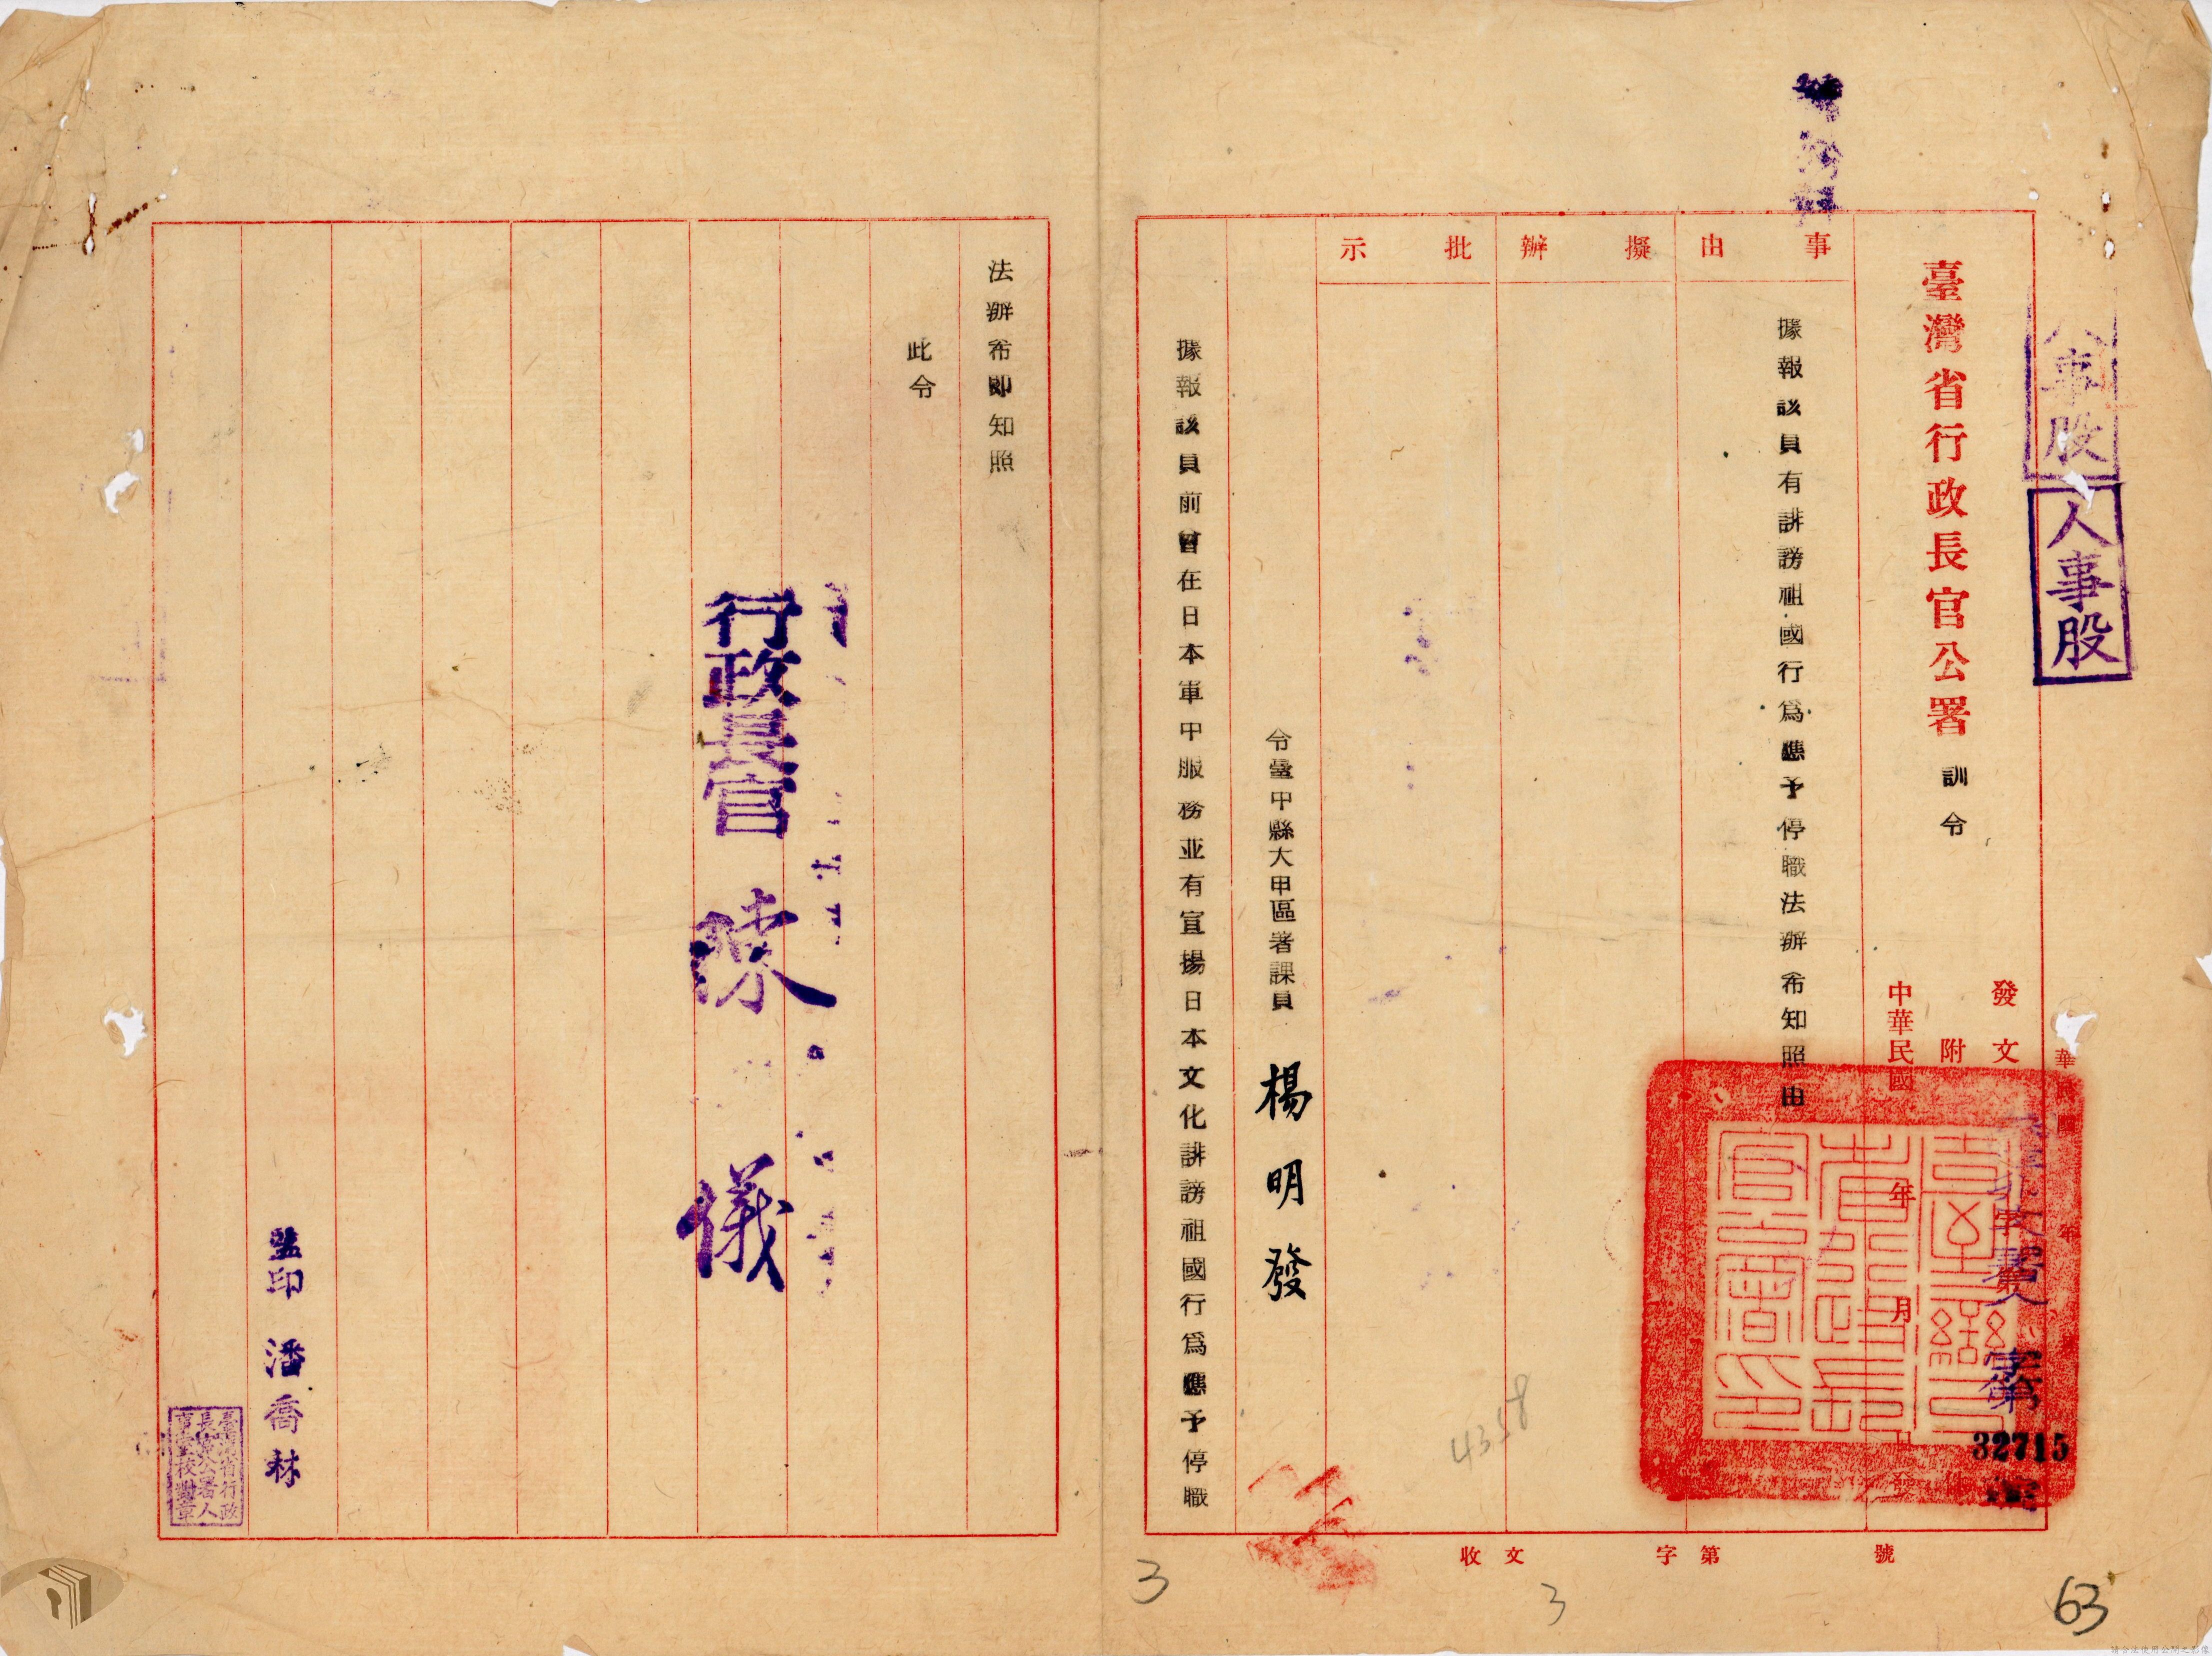 人事股
人事股
臺灣省行政長官公署 訓令
發文
附
中華民國 年 月
字第
32715
事由
據報該員有誹謗祖國行爲應予停職法辦希知照由
擬辦
批示
令臺中縣大甲區署課員 楊明發
據報該員前曾在日本軍中服務並有宣揚日本文化誹謗祖國行爲應予停職
法辦希即知照
此令
行政長官 陳儀
監印 潘喬林
臺灣省行政
長官公署人
事室校對章
收文 字第 號
4358
3
3
63
請合法使用公開之影像